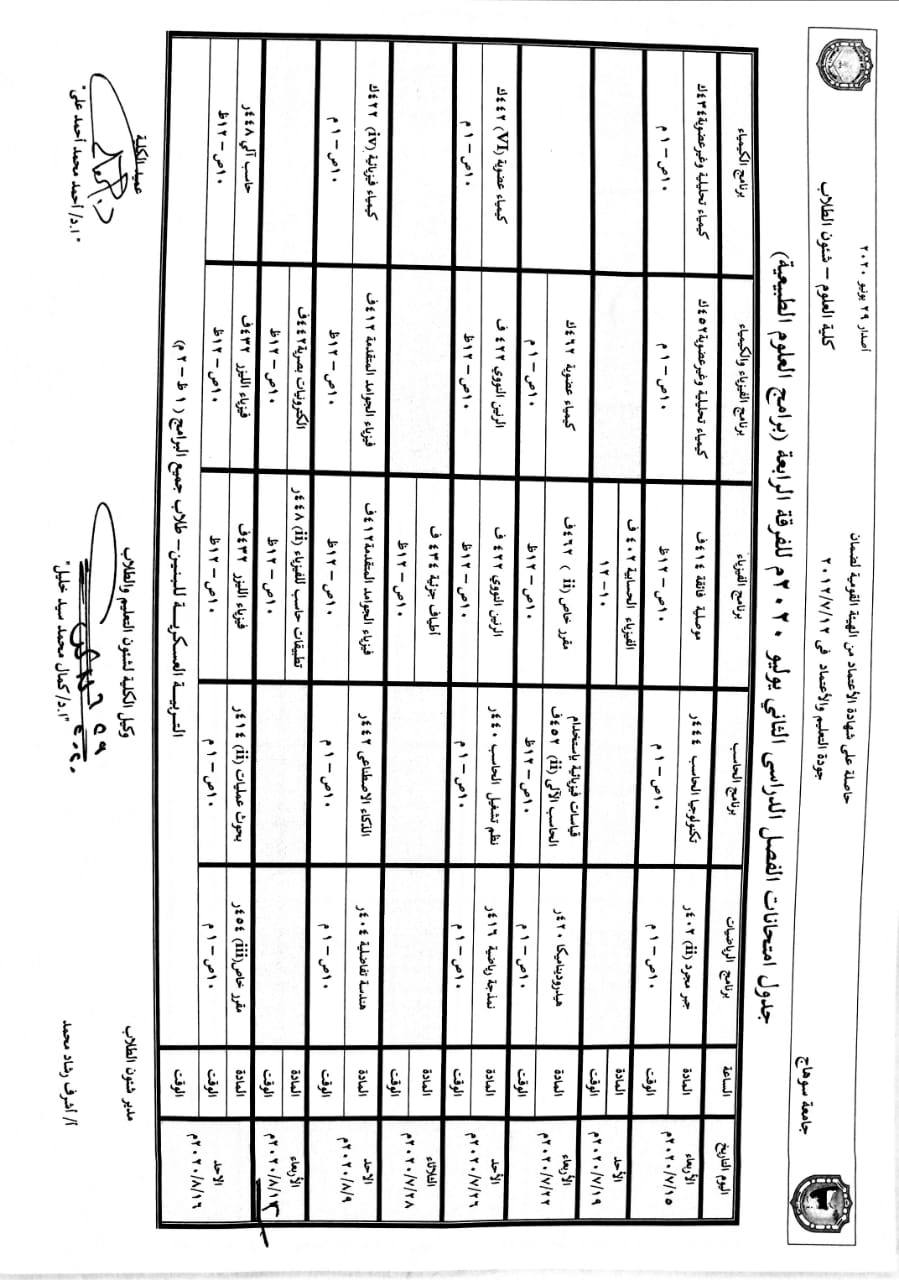 جامعة سوهاج
كلية العلوم – شئون الطلاب
أصدار ٢٩ يونيو ٢٠٢٠
حاصلة على شهادة الأعتماد من الهيئة القومية لضمان
جودة التعليم والأعتماد فى ٢٠١٢/٧/١٢
جدول امتحانات الفصل الدراسى الثاني يوليو ٢٠٢٠م للفرقة الرابعة (برامج العلوم الطبيعية)
اليوم التاريخ الساعة برنامج الرياضيات برنامج الحاسب برنامج الفيزياء برنامج الفيزياء والكيمياء برنامج الكيمياء
الأربعاء المادة جبر مجرد (ii) ٤٠٢ر تكنولوجيا الحاسب ٤٤٤ر موصلية فائقة ٤١٤ف كيمياء تحليلية وغيرعضوية٤٥٢ك كيمياء تحليلية وغيرعضوية٤٣٤ك
٢٠٢٠/٧/١٥م الوقت ١٠ص – ١م ١٠ص – ١م ١٠ص – ١٢ظ ١٠ص – ١م ١٠ص – ١م
الأحد المادة الفيزياء الحسابية ٤٠٢ ف
٢٠٢٠/٧/١٩م الوقت ١٠ – ١٢
الأربعاء المادة هيدروديناميكا ٤٢٠ر قياسات فيزيائية باستخدام الحاسب الآلى (ii) ٤٥٢ف مقرر خاص (ii) ٤٦٢ف كيمياء عضوية ٤٦٢ك
٢٠٢٠/٧/٢٢م الوقت ١٠ص – ١م ١٠ص – ١٢ظ ١٠ص – ١٢ظ ١٠ص – ١م
الأحد المادة نمذجة رياضية ٤١٦ر نظم تشغيل الحاسب ٤٤٠ر الرنين النووي ٤٢٢ ف الرنين النووي ٤٢٢ ف كيمياء عضوية (VI) ٤٤٢ك
٢٠٢٠/٧/٢٦م الوقت ١٠ص – ١م ١٠ص – ١م ١٠ص – ١٢ظ ١٠ص – ١٢ظ ١٠ص – ١م
الثلاثاء المادة أطياف جزئية ٤٣٤ ف
٢٠٢٠/٧/٢٨م الوقت ١٠ص – ١٢ظ
الاحد المادة هندسة تفاضلية ٤٠٤ر الذكاء الاصطناعى ٤٤٢ر فيزياء الجوامد المتقدمة٤١٢ف فيزياء الجوامد المتقدمة ٤١٢ف كيمياء فيزيائية (iv) ٤٢٢ك
٢٠٢٠/٨/٩م الوقت ١٠ص – ١م ١٠ص – ١م ١٠ص – ١٢ظ ١٠ص – ١٢ظ ١٠ص – ١م
الأربعاء المادة تطبيقات حاسب للفيزياء (ii) ٤٤٨ر الكترونيات بصرية٤٤٢ف
الوقت ١٠ص – ١٢ظ ١٠ص – ١٢ظ
الاحد المادة مقرر خاص(iii) ٤٥٤ر بحوث عمليات (ii) ٤١٤ر فيزياء الليزر ٤٣٢ف فيزياء الليزر ٤٣٢ف حاسب آلي ٤٤٨ر
٢٠٢٠/٨/١٦م الوقت ١٠ص – ١م ١٠ص – ١م ١٠ص – ١٢ظ ١٠ص – ١٢ظ ١٠ص – ١٢ظ
الوقت التربية العسكرية للبنين– طلاب جميع البرامج (١ظ – ٢م)
مدير شئون الطلاب وكيل الكلية لشئون التعليم والطلاب عميد الكلية
أ/ أشرف رشاد محمد "ا.د/ كمال محمد سيد خليل" "ا.د/ أحمد محمد أحمد على"